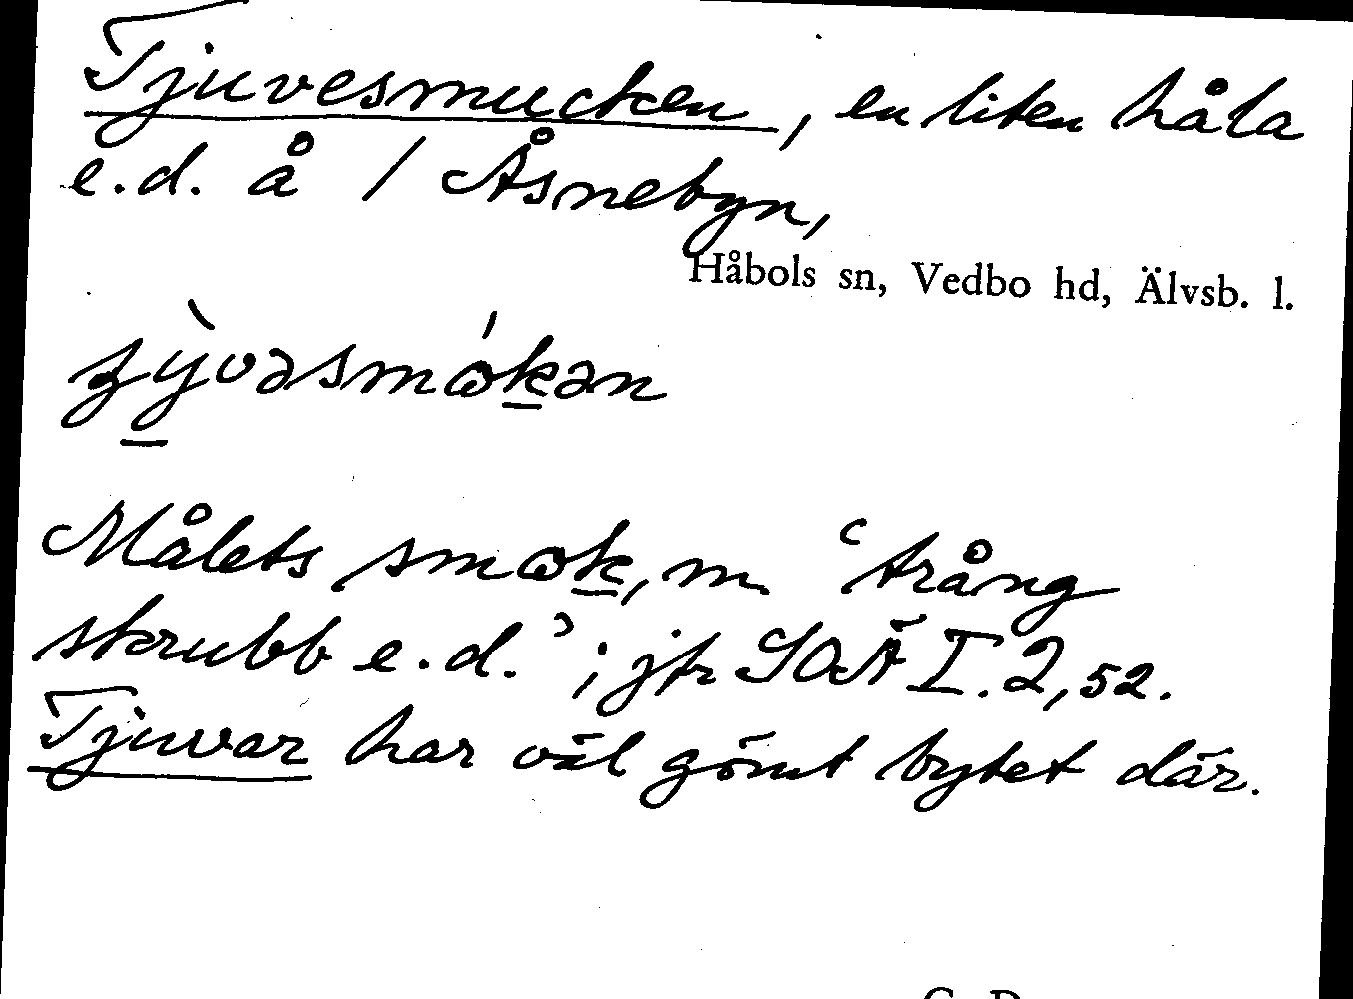 Tjuvesmucken, en liten håla
e.d. å / Åsnebyn,
Håbols sn, Vedbo hd, Älvsb. l.
Målets smωk, m. ‘trång
skrubb e.d.’; jfr SOÄ I.2,52.
Tjuvar har väl gömt bytet där.